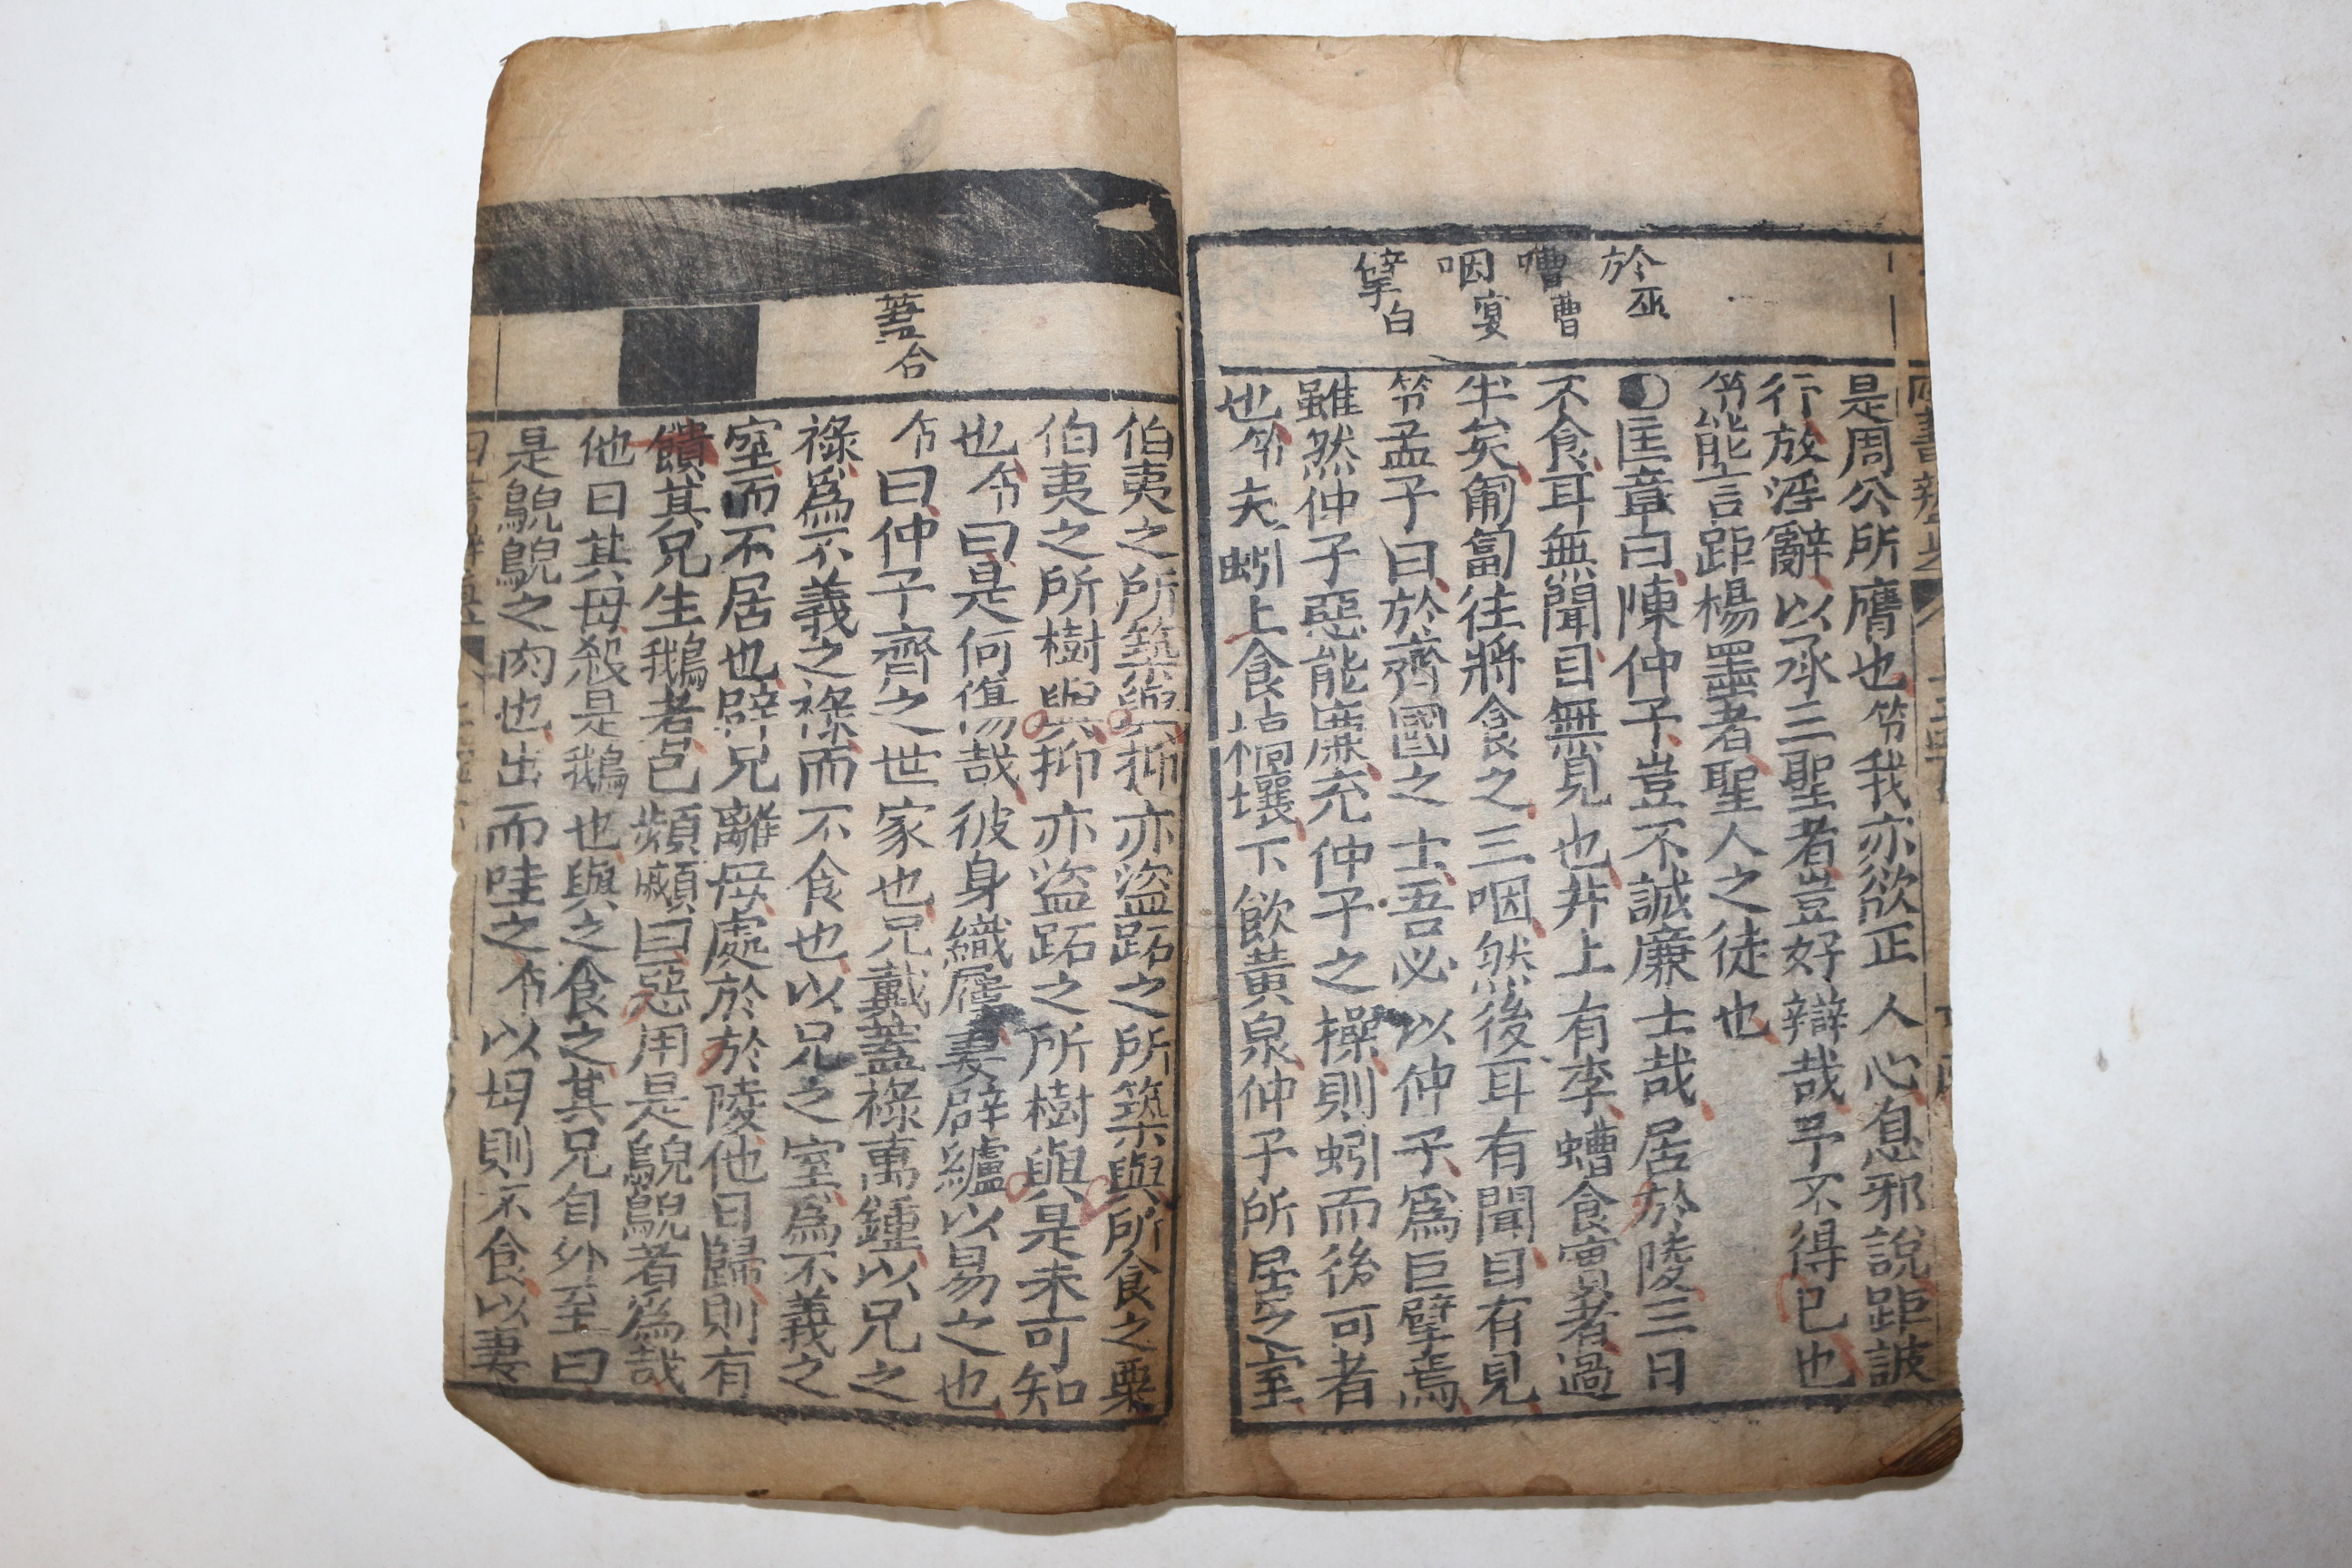 於巫
嘈曹
咽宴
擘白
是周公所膺也竻我亦欲正人心息邪說距詖
行放淫辭以承三聖者豈好辯哉予不得已也
竻能言距楊墨者聖人之徒也
匡章曰陳仲子豈不誠廉士哉居於陵三日
不食耳無聞目無見也井上有李螬食實者過
半矣匍匐往將食之三咽然後耳有聞目有見
竻孟子曰於齊國之士吾必以仲子為巨擘焉
雖然仲子惡能廉充仲子之操則蚓而後可者
也竻夫蚓上食枯桐壤下飲黃泉仲子所居之室
蓋合
伯夷之所築與抑亦盜跖之所築與所食之粟
伯夷之所樹與抑亦盜跖之所樹與是未可知
也竻曰是何傷哉彼身織屨妻辟纑以易之也
竻曰仲子齊之世家也兄戴蓋祿萬鍾以兄之
祿為不義之祿而不食也以兄之室為不義之
室而不居也辟兄離母處於於陵他日歸則有
饋其兄生鵝者邑頻顣曰惡用是鶃鶃者為哉
他日其母殺是鵝也與之食之其兄自外至曰
是鶃鶃之肉也出而哇之竻以母則不食以妻